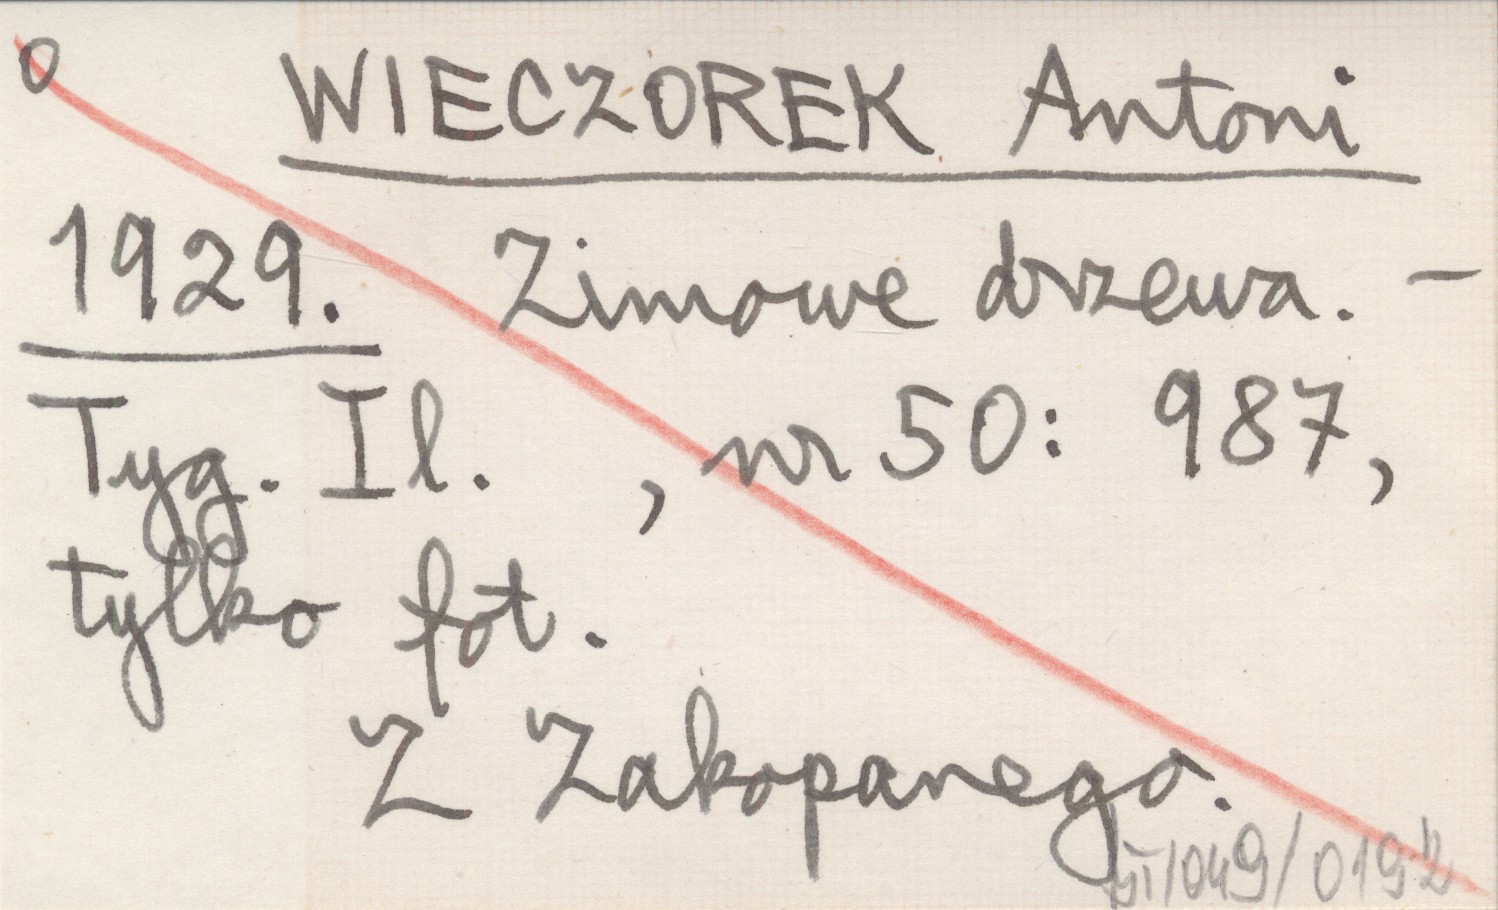 0
WIECZOREK Antoni
1929. Zimowe drzewa. –
Tyg. Il. , nr 50: 987,
tylko fot.
Z Zakopanego.
/049/0192